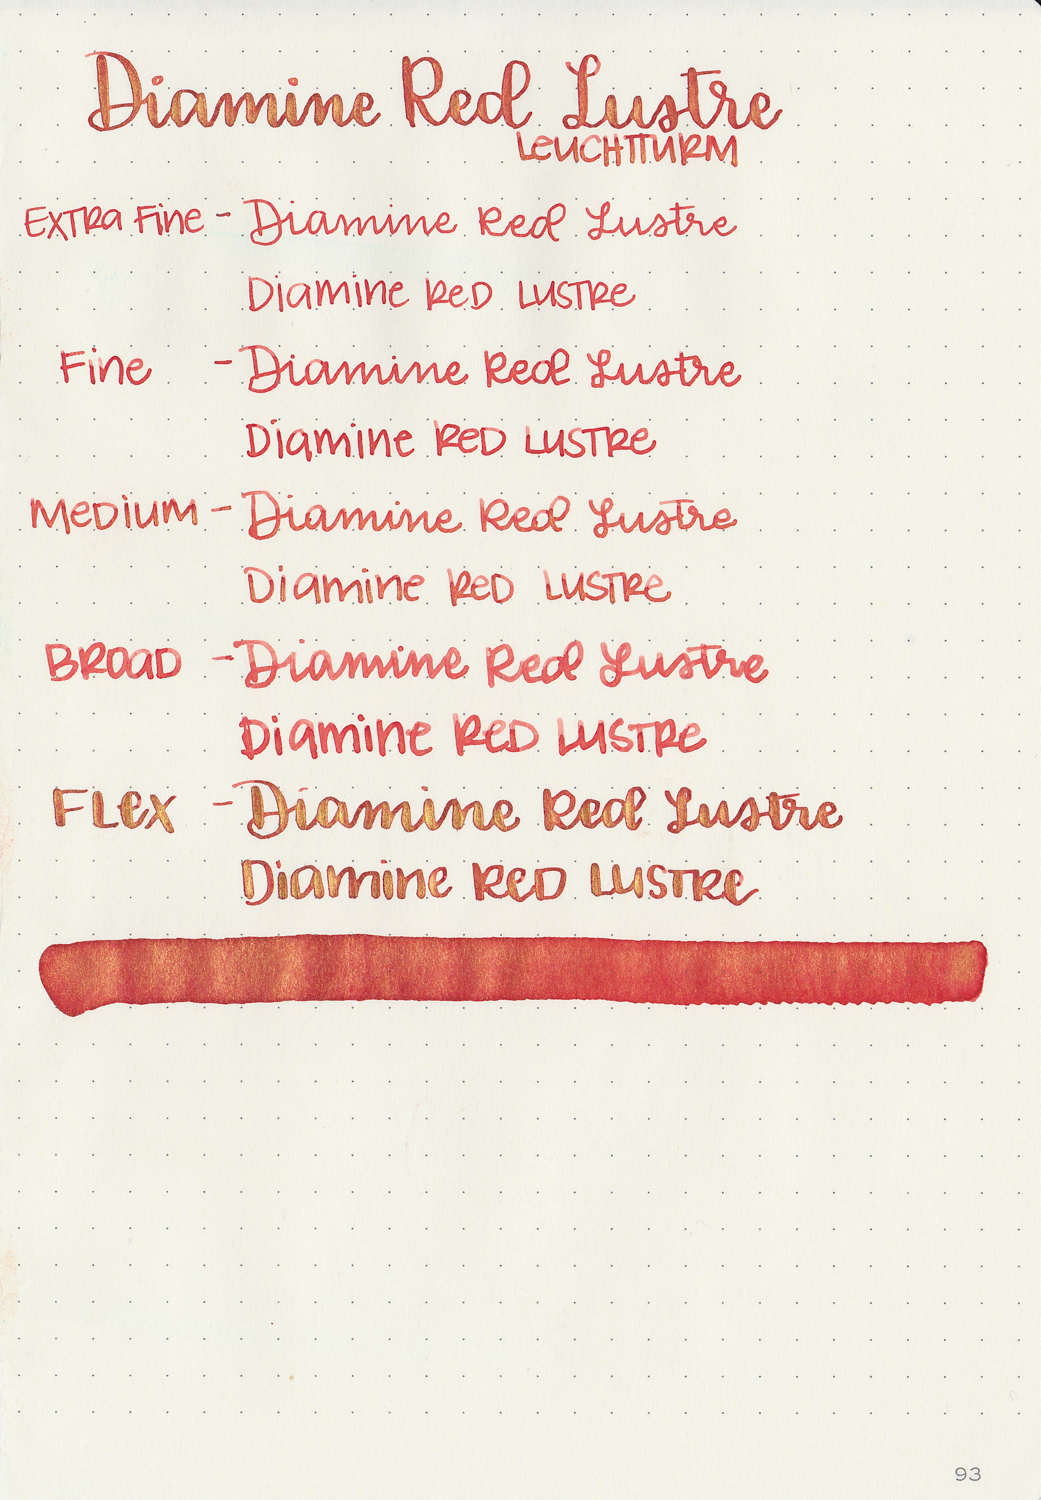 Diamine Red Lustre
LEUCHTTURM
EXTRA Fine - Diamine Red Lustre
Diamine ReD LUSTRe
Fine - Diamine Red Lustre
Diamine ReD LUSTRe
MeDiUM - Diamine Red Lustre
Diamine ReD LUSTRe
BROaD - Diamine Red Lustre
Diamine ReD LUSTRe
FLex - Diamine Red Lustre
Diamine ReD LUSTRe
93